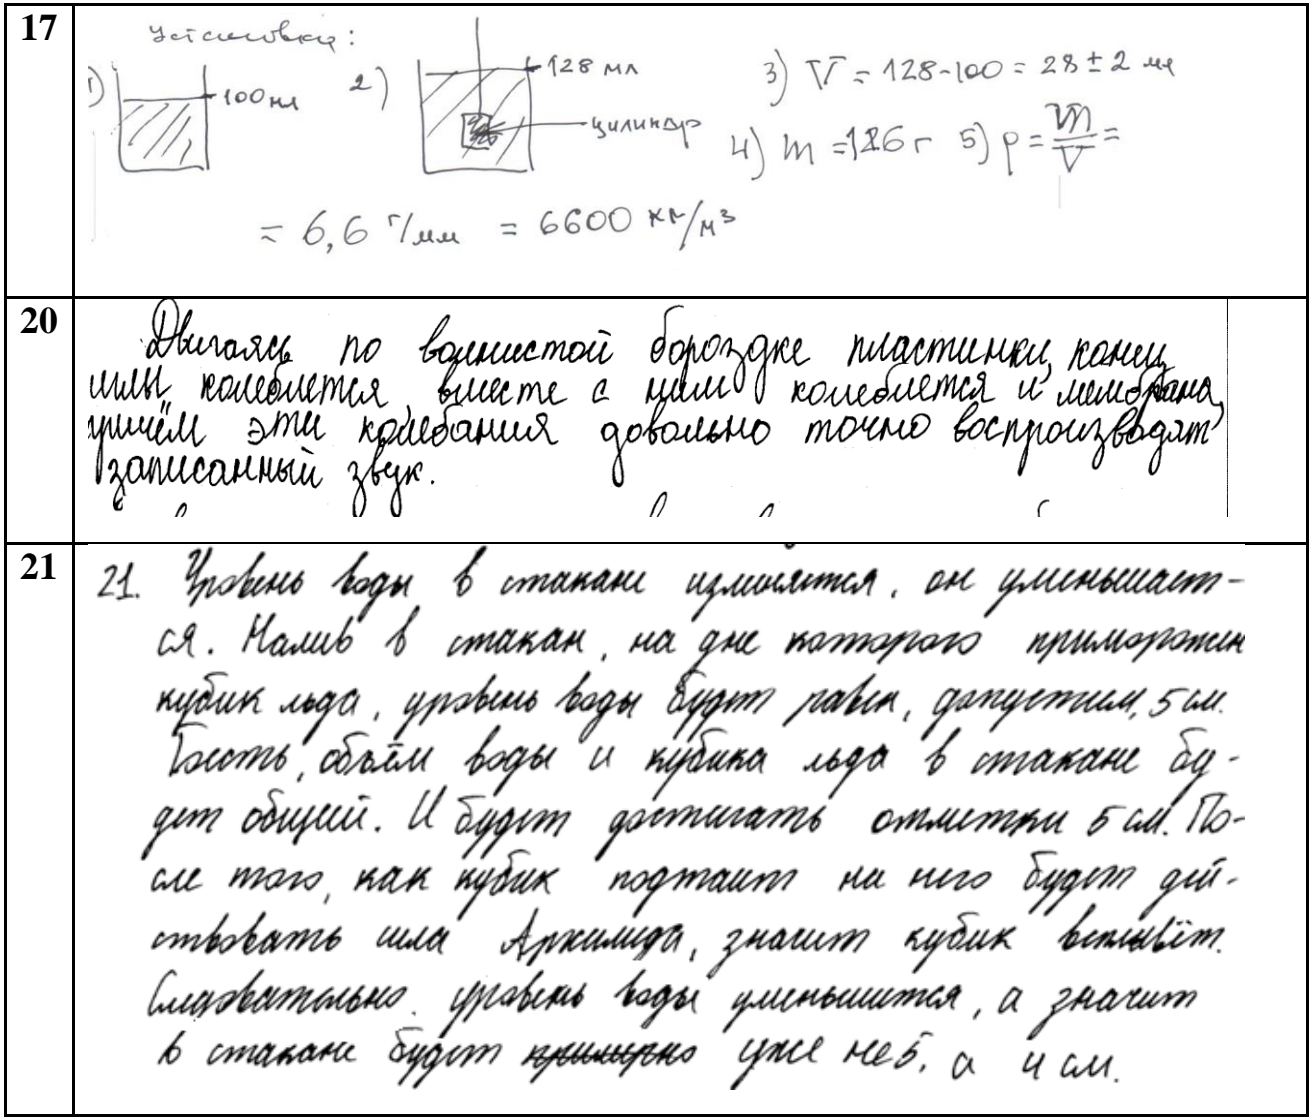 17
Установка:
1) 100 мл 2) 128 мл цилиндр
3) V = 128-100 = 28 ± 2 мл
4) m = 186 г 5) ρ = m/V =
= 6,6 г/мм = 6600 кг/м³
20
Двигаясь по волнистой бороздке пластинки, конец
иглы колеблется, вместе с ним колеблется и мембрана,
причём эти колебания довольно точно воспроизводят
записанный звук.
21
21. Уровень воды в стакане изменится, он уменьшает-
ся. Налив в стакан, на дне которого приморожен
кубик льда, уровень воды будет равен, допустим, 5 см.
Тоесть, объём воды и кубика льда в стакане бу-
дет общий. И будет достигать отметки 5 см. По-
сле того, как кубик подтает на него будет дей-
ствовать сила Архимеда, значит кубик всплывёт.
Следовательно, уровень воды уменьшится, а значит
в стакане будет примерно уже не 5, а 4 см.